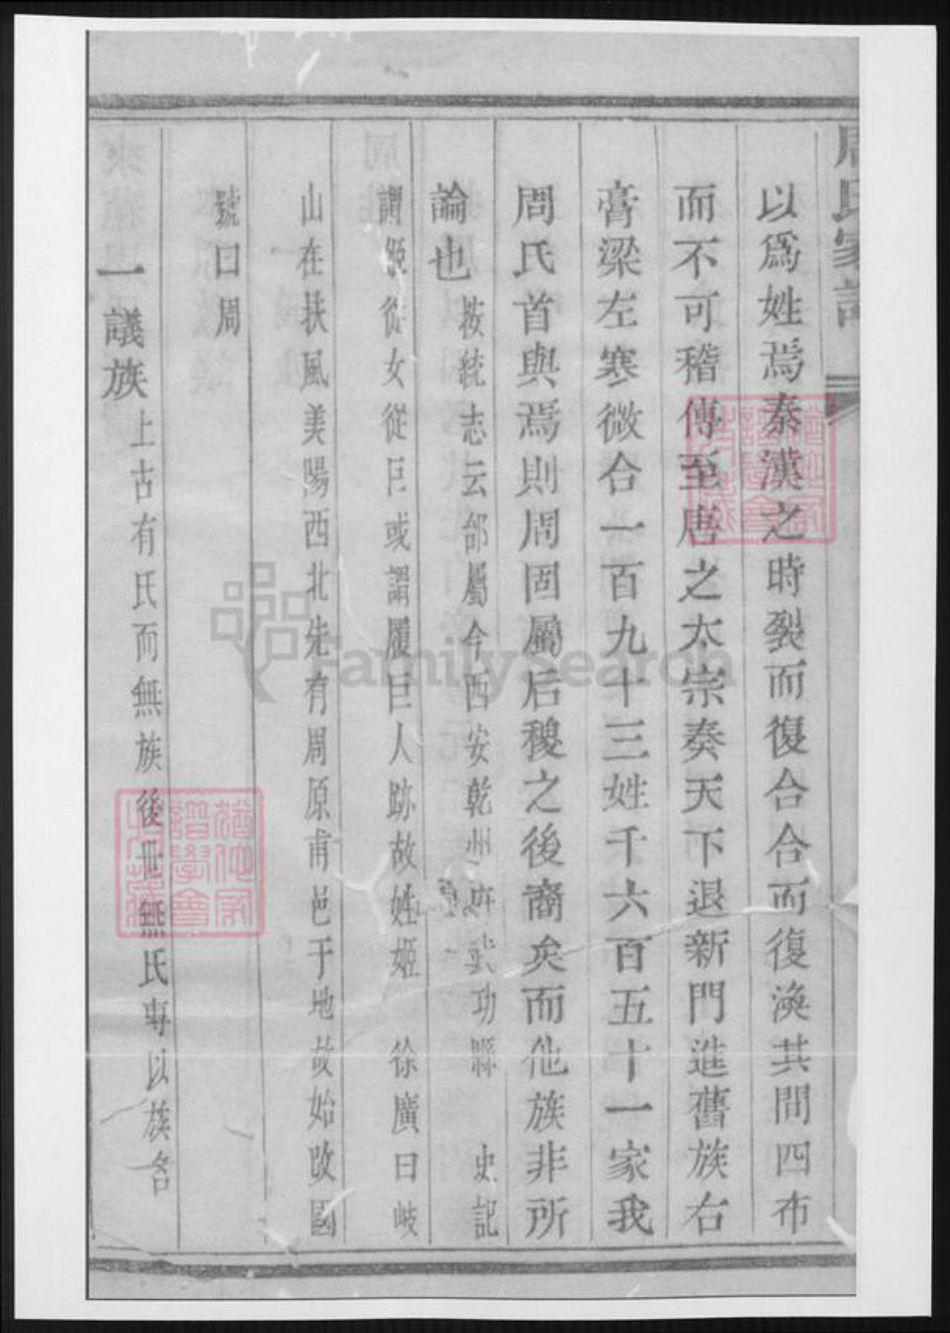 周氏家譜
以為姓焉秦漢之時裂而復合合而復渙其間四布
而不可稽傳至唐之太宗奏天下退新門進舊族右
膏梁左寒微合一百九十三姓千六百五十一家我
周氏首與焉則周固屬后稷之後裔矣而他族非所
論也 按統志云邰屬今西安乾州府武功縣 史記
謂姬從女從𦣞或謂履巨人跡故姓姬 徐廣曰岐
山在扶風美陽西北先有周原甫邑于地故始改國
號曰周
一議族 上古有氏而無族後世無氏專以族名
FamilySearch